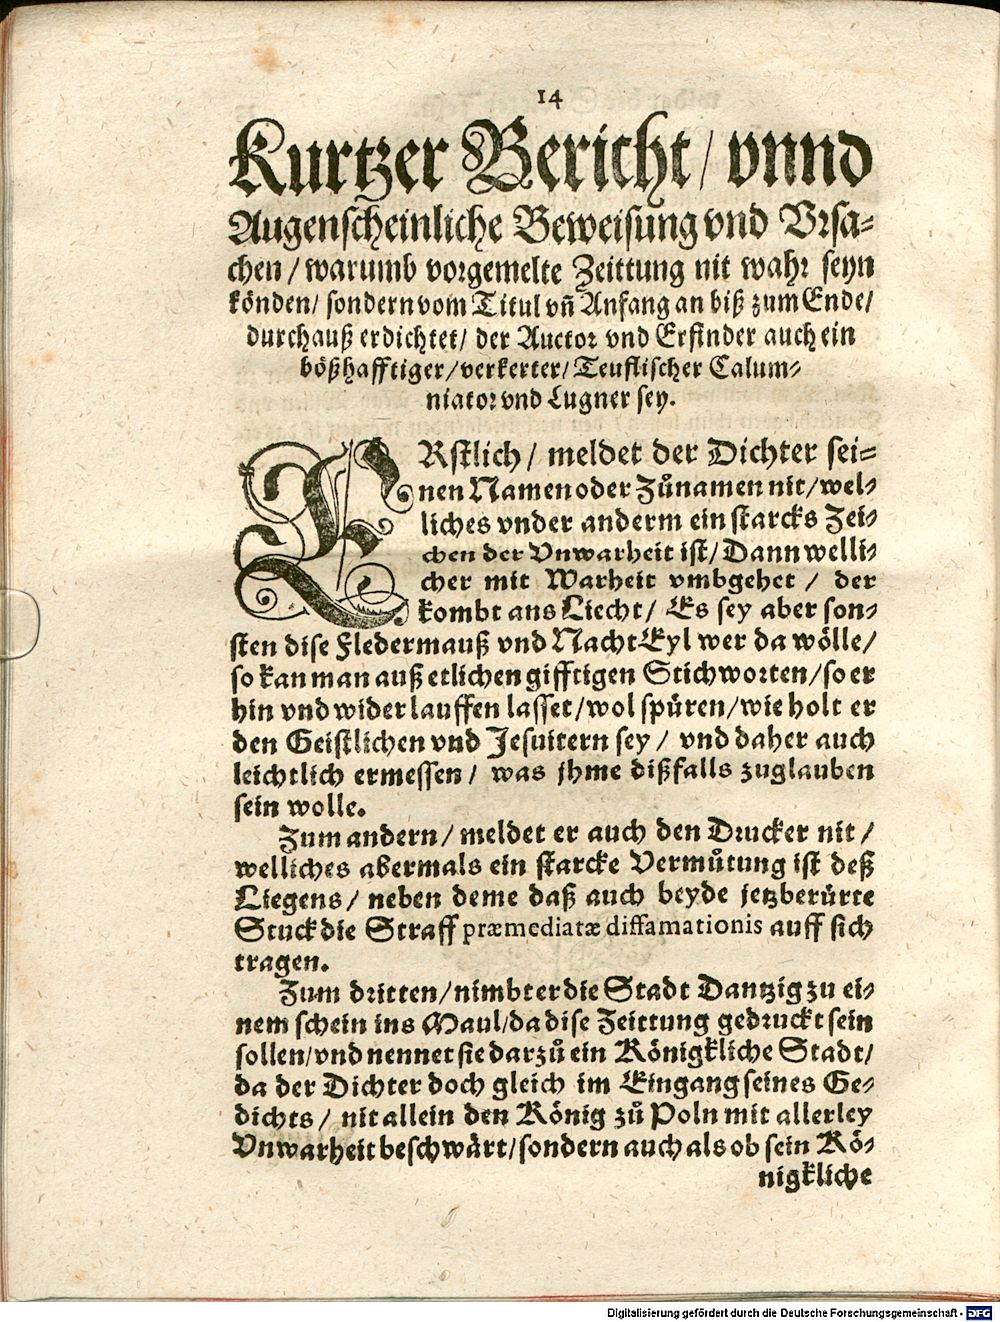 14
Kurtzer Bericht/ vnnd
Augenscheinliche Beweisung vnd Vrsa-
chen/ warumb vorgemelte Zeittung nit wahr seyn
könden/ sondern vom Titul vn̄ Anfang an biß zum Ende/
durchauß erdichtet/ der Auctor vnd Erfinder auch ein
bößhafftiger/ verkerter/ Teuflischer Calum-
niator vnd Lugner sey.
ERstlich/ meldet der Dichter sei-
nen Namen oder Zůnamen nit/ wel-
liches vnder anderm ein starcks Zei-
chen der Vnwarheit ist/ Dann welli-
cher mit Warheit vmbgehet / der
kombt ans Liecht/ Es sey aber son-
sten dise Fledermauß vnd NachtEyl wer da wölle/
so kan man auß etlichen gifftigen Stichworten/ so er
hin vnd wider lauffen lasset/ wol spüren/ wie holt er
den Geistlichen vnd Jesuitern sey/ vnd daher auch
leichtlich ermessen/ was jhme dißfalls zuglauben
sein wolle.
Zum andern/ meldet er auch den Drucker nit/
welliches abermals ein starcke Vermůtung ist deß
Liegens/ neben deme daß auch beyde jetzberürte
Stuck die Straff præmediatæ diffamationis auff sich
tragen.
Zum dritten/ nimbt er die Stadt Dantzig zu ei-
nem schein ins Maul/ da dise Zeittung gedruckt sein
sollen/ vnd nennet sie darzů ein Königkliche Stadt/
da der Dichter doch gleich im Eingang seines Ge-
dichts/ nit allein den König zů Poln mit allerley
Vnwarheit beschwärt/ sondern auch als ob sein Kö-
nigkliche
Digitalisierung gefördert durch die Deutsche Forschungsgemeinschaft - DFG